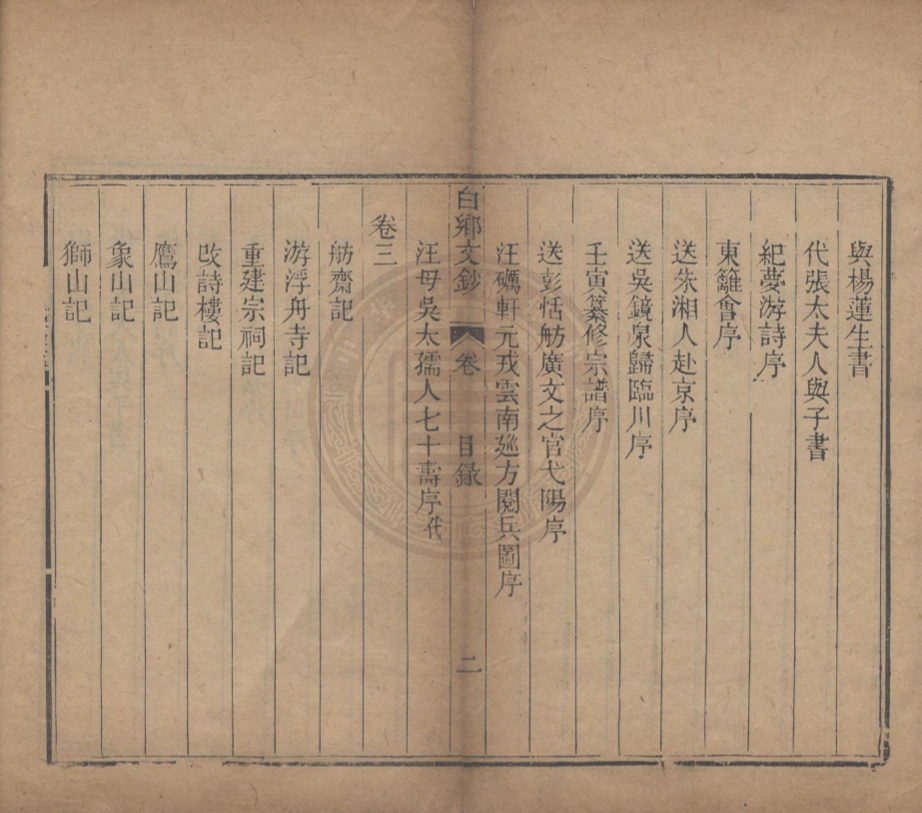 與楊蓮生書
代張太夫人與子書
紀夢游詩序
東籬會序
送朱湘人赴京序
送吳鏡泉歸臨川序
壬寅纂修宗譜序
送彭恬舫廣文之官弋陽序
汪礪軒元戎雲南廵方閱兵圖序
白鄉文鈔 卷 目錄 二
汪母吳太孺人七十壽序代
卷三
舫齋記
游浮舟寺記
重建宗祠記
改詩樓記
鷹山記
象山記
獅山記